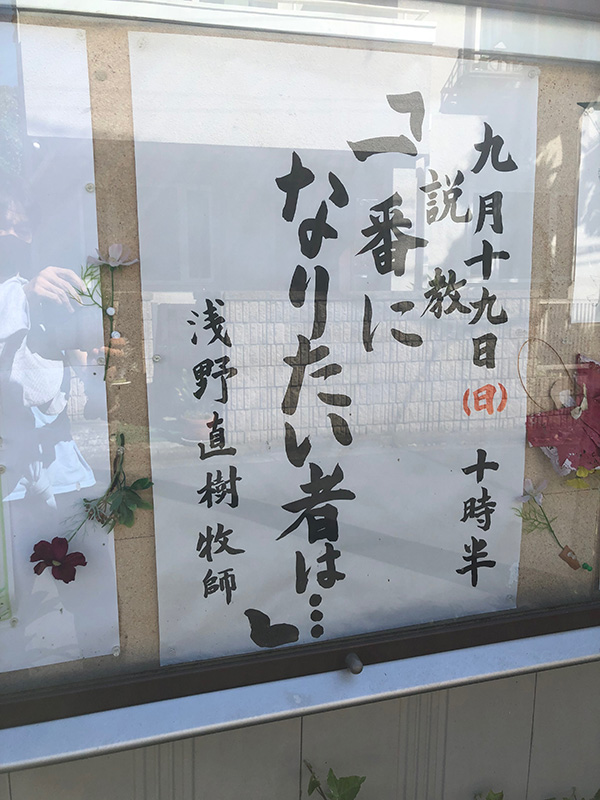 九月十九日(日) 十時半
説教
「一番に
なりたい者は…」
浅野直樹牧師